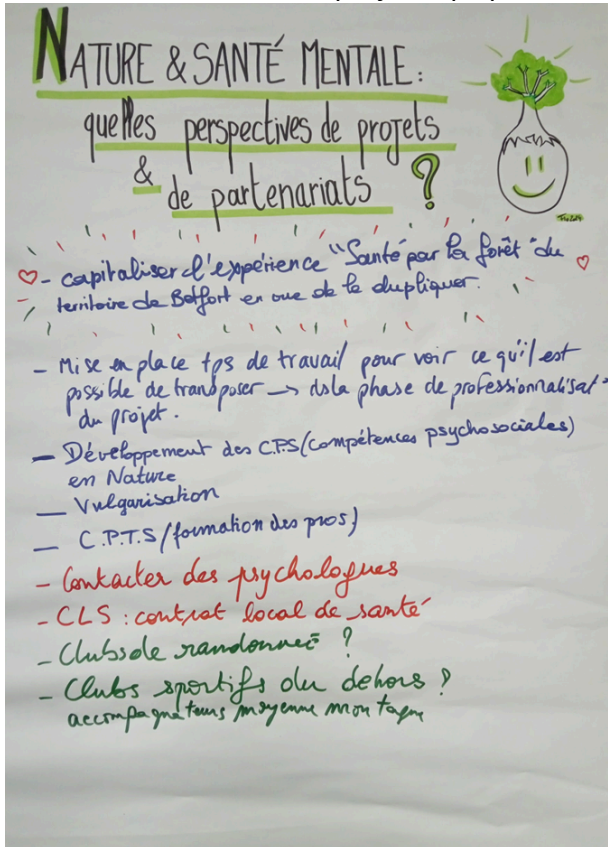 NATURE & SANTÉ MENTALE :
quelles perspectives de projets
& de partenariats ?
- capitaliser l'expérience "Santé par la forêt" du
territoire de Belfort en vue de la dupliquer.
- Mise en place tps de travail pour voir ce qu'il est
possible de transposer → ds la phase de professionnalisat°
du projet.
- Développement des C.P.S (compétences psychosociales)
en Nature
- Vulgarisation
- C.P.T.S / (formation des pros)
- Contacter des psychologues
- CLS : contrat local de santé
- Clubs de randonnée ?
- Clubs sportifs du dehors ?
accompagnateurs moyenne montagne